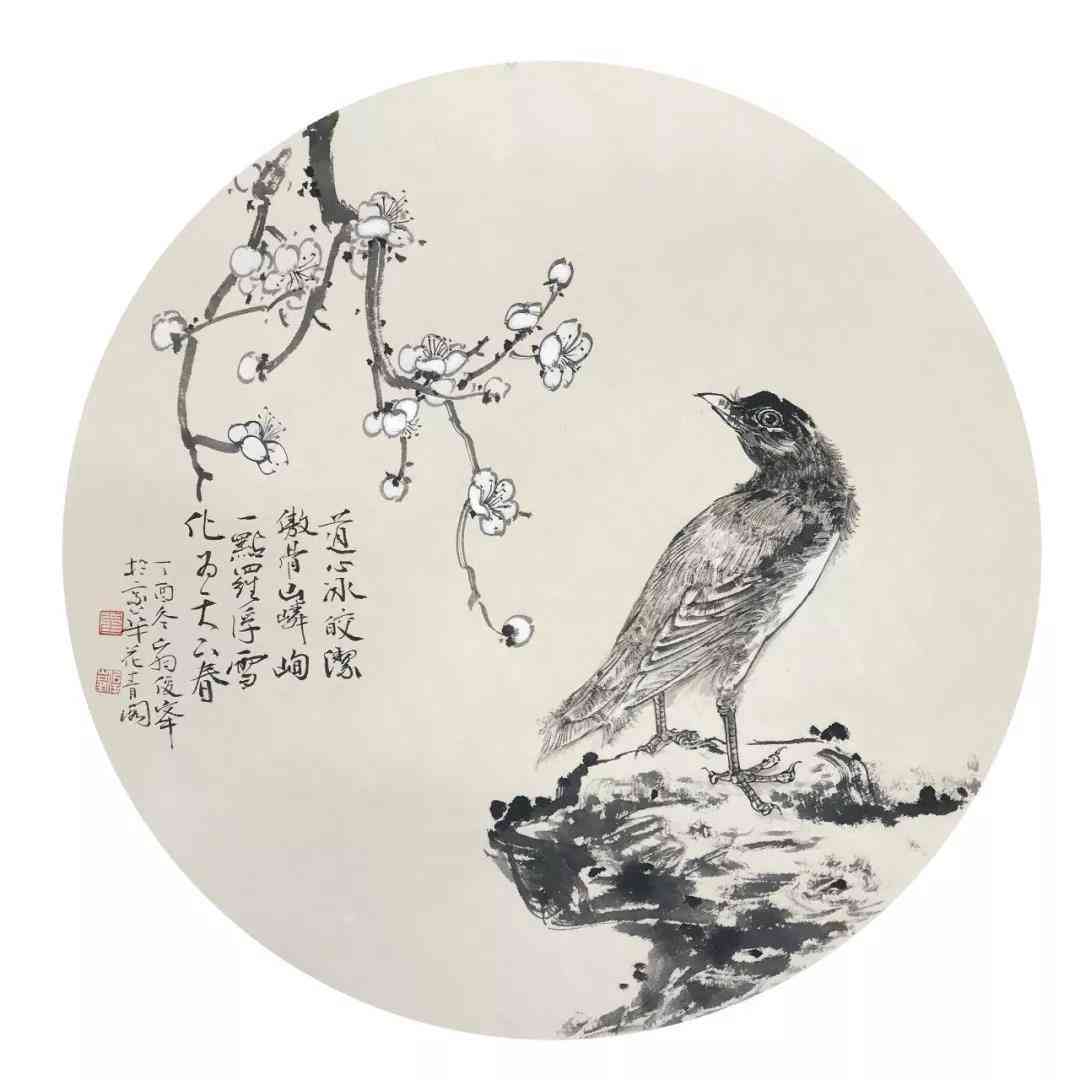 道心冰皎潔
傲骨山嶙峋
一點羅浮雪
化为天下春
丁酉冬俊峯
於京華花青閣